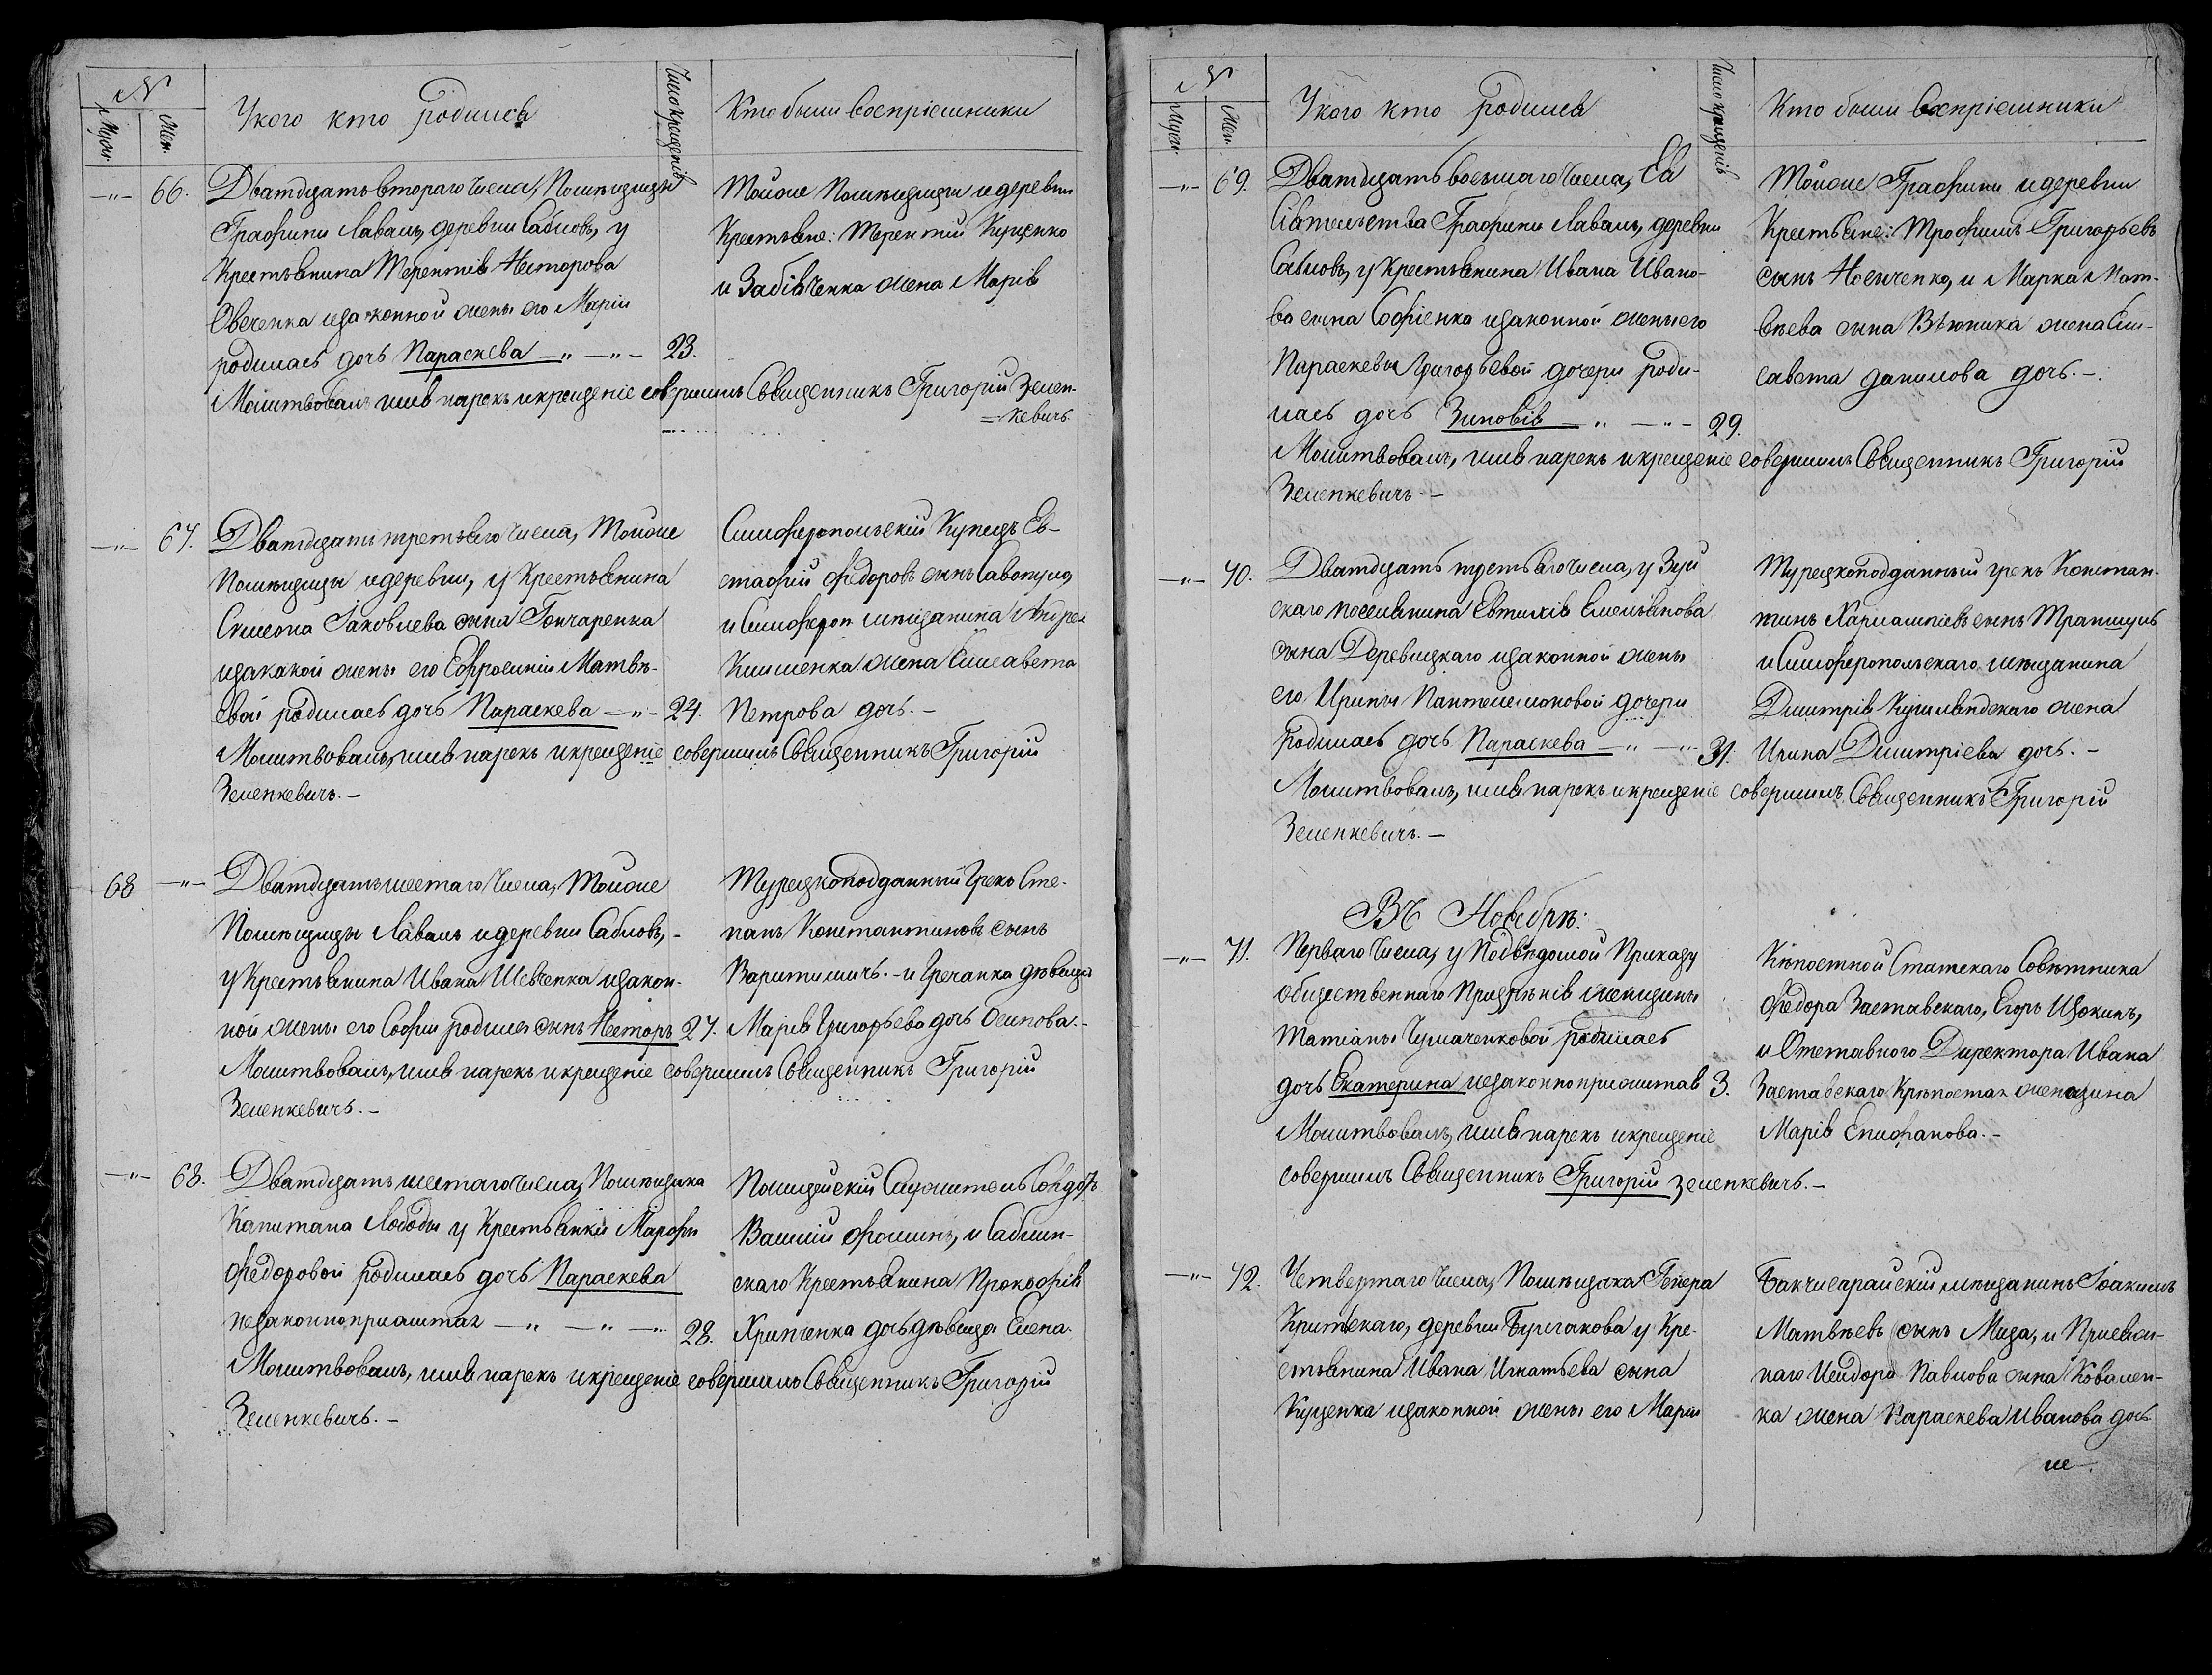 №
Муж.
Жен.
У кого кто родился
Число крещенія
Кто были воспріемники
—"— 66.
Дватцать втораго числа, Помѣщицы
Графини Лаваль, деревни Сабловъ, у
Крестьянина Терентія Нестерова
Овченка изаконной жены его Маріи
родилась дочь Параскева —"—"— 23.
Тойже Помѣщицы и деревни
Крестьяне: Терентій Куценко
и Забіяченка жена Марія
Молитвовалъ имя нарекъ и крещеніе совершилъ Священникъ Григорій Зелен-
=кевичъ.
—"— 67.
Дватцать третьяго числа, Тойже
Помѣщицы и деревни, у Крестьянина
Симеона Іаковлева сына Гончаренка
изаконой жены его Евфросиніи Матвѣ-
евой родилась дочь Параскева —"— 24.
Симферопольскій Купецъ Ев-
стафій Федоровъ сынъ Савопуло,
и Симфероп мѣщанина Андрея
Клименка жена Елисавета
Петрова дочь.—
Молитвовалъ, имя нарекъ и крещеніе совершилъ Священникъ Григорій
Зеленкевичъ.—
68 —"—
Дватцать шестаго числа, Тойже
Помѣщицы Лаваль и деревни Сабловъ,-
у Крестьянина Ивана Шевченка изакон-
ной жены его Софіи родился сынъ Несторъ 27.
Турецкоподданный Грекъ Сте-
панъ Константиновъ сынъ
Варитимичъ.- и Гречанка дѣвица
Марія Григорьева дочь Осипова.-
Молитвовалъ, имя нарекъ и крещеніе совершилъ Священникъ Григорій
Зеленкевичъ.—
—"— 68.
Дватцать шестаго числа, Помѣщика
Капитана Лободы у Крестьянки Марфы
Федоровой родилась дочь Параскева
незаконноприжитая —"—"—"— 28.
Полицейскій Служитель
Василій Фоминъ, и Саблин-
скаго Крестьянина Прокофія
Хрипченка дочь дѣвица Елена.
Молитвовалъ, имя нарекъ и крещеніе совершилъ Священникъ Григорій
Зеленкевичъ.—
№
Муж.
Жен.
У кого кто родился
Число крещенія
Кто были воспріемники
—"— 69.
Дватцать восьмаго числа, Ея
Сіятельства Графини Лаваль, деревни
Сабловъ, у Крестьянина Ивана Ивано-
ва сына Софіенка изаконной жены его
Параскевы Григорьевой дочери роди-
лась дочь Зиновія —"—"— 29.
Тойже Графини и деревни
Крестьяне: Трофимъ Григорьевъ
сынъ Носиченко, и Марка Мат-
вѣева сына Вьюника жена Ели-
савета Данилова дочь.—
Молитвовалъ, имя нарекъ и крещеніе совершилъ Священникъ Григорій
Зеленкевичъ.—
—"— 70.
Дватцать третьяго числа, у Зуй
скаго поселянина Евтихія Емельянова
сына Деревицкаго изаконной жены
его Ирины Пантелеимоновой дочери
родилась дочь Параскева —"—"— 31.
Турецкоподданный грекъ Констан-
тинъ Харлампіевъ сынъ
и Симферопольскаго мѣщанина
Димитрія Кушляндскаго жена
Ирина Димитріева дочь.—
Молитвовалъ, имя нарекъ и крещеніе совершилъ Священникъ Григорій
Зеленкевичъ.—
Въ Ноябрѣ:
—"— 71.
Перваго числа, у Подвѣдомой Приказу
общественнаго Призрѣнія женщины
Татіаны Чумаченковой родилась
дочь Екатерина незаконноприжитая 3.
Крѣпостной Статскаго Совѣтника
Федора Заставскаго, Егоръ Щокинъ,
и Отставного Директора Ивана
Заставскаго Крѣпостая женщина
Марія Епифанова.—
Молитвовалъ, имя нарекъ и крещеніе
совершилъ Священникъ Григорій Зеленкевичъ.—
—"— 72.
Четвертаго числа, Помѣщика Генера
Критскаго, деревни Булгакова у Кре-
стьянина Ивана Игнатьева сына
Куценка изаконной жены его Маріи
Бакчисарайскій мѣщанинъ Іоакимъ
Матвѣевъ сынъ Маза, и
наго Исидора Павлова сына Ковален-
ка жена Параскева Иванова дочь